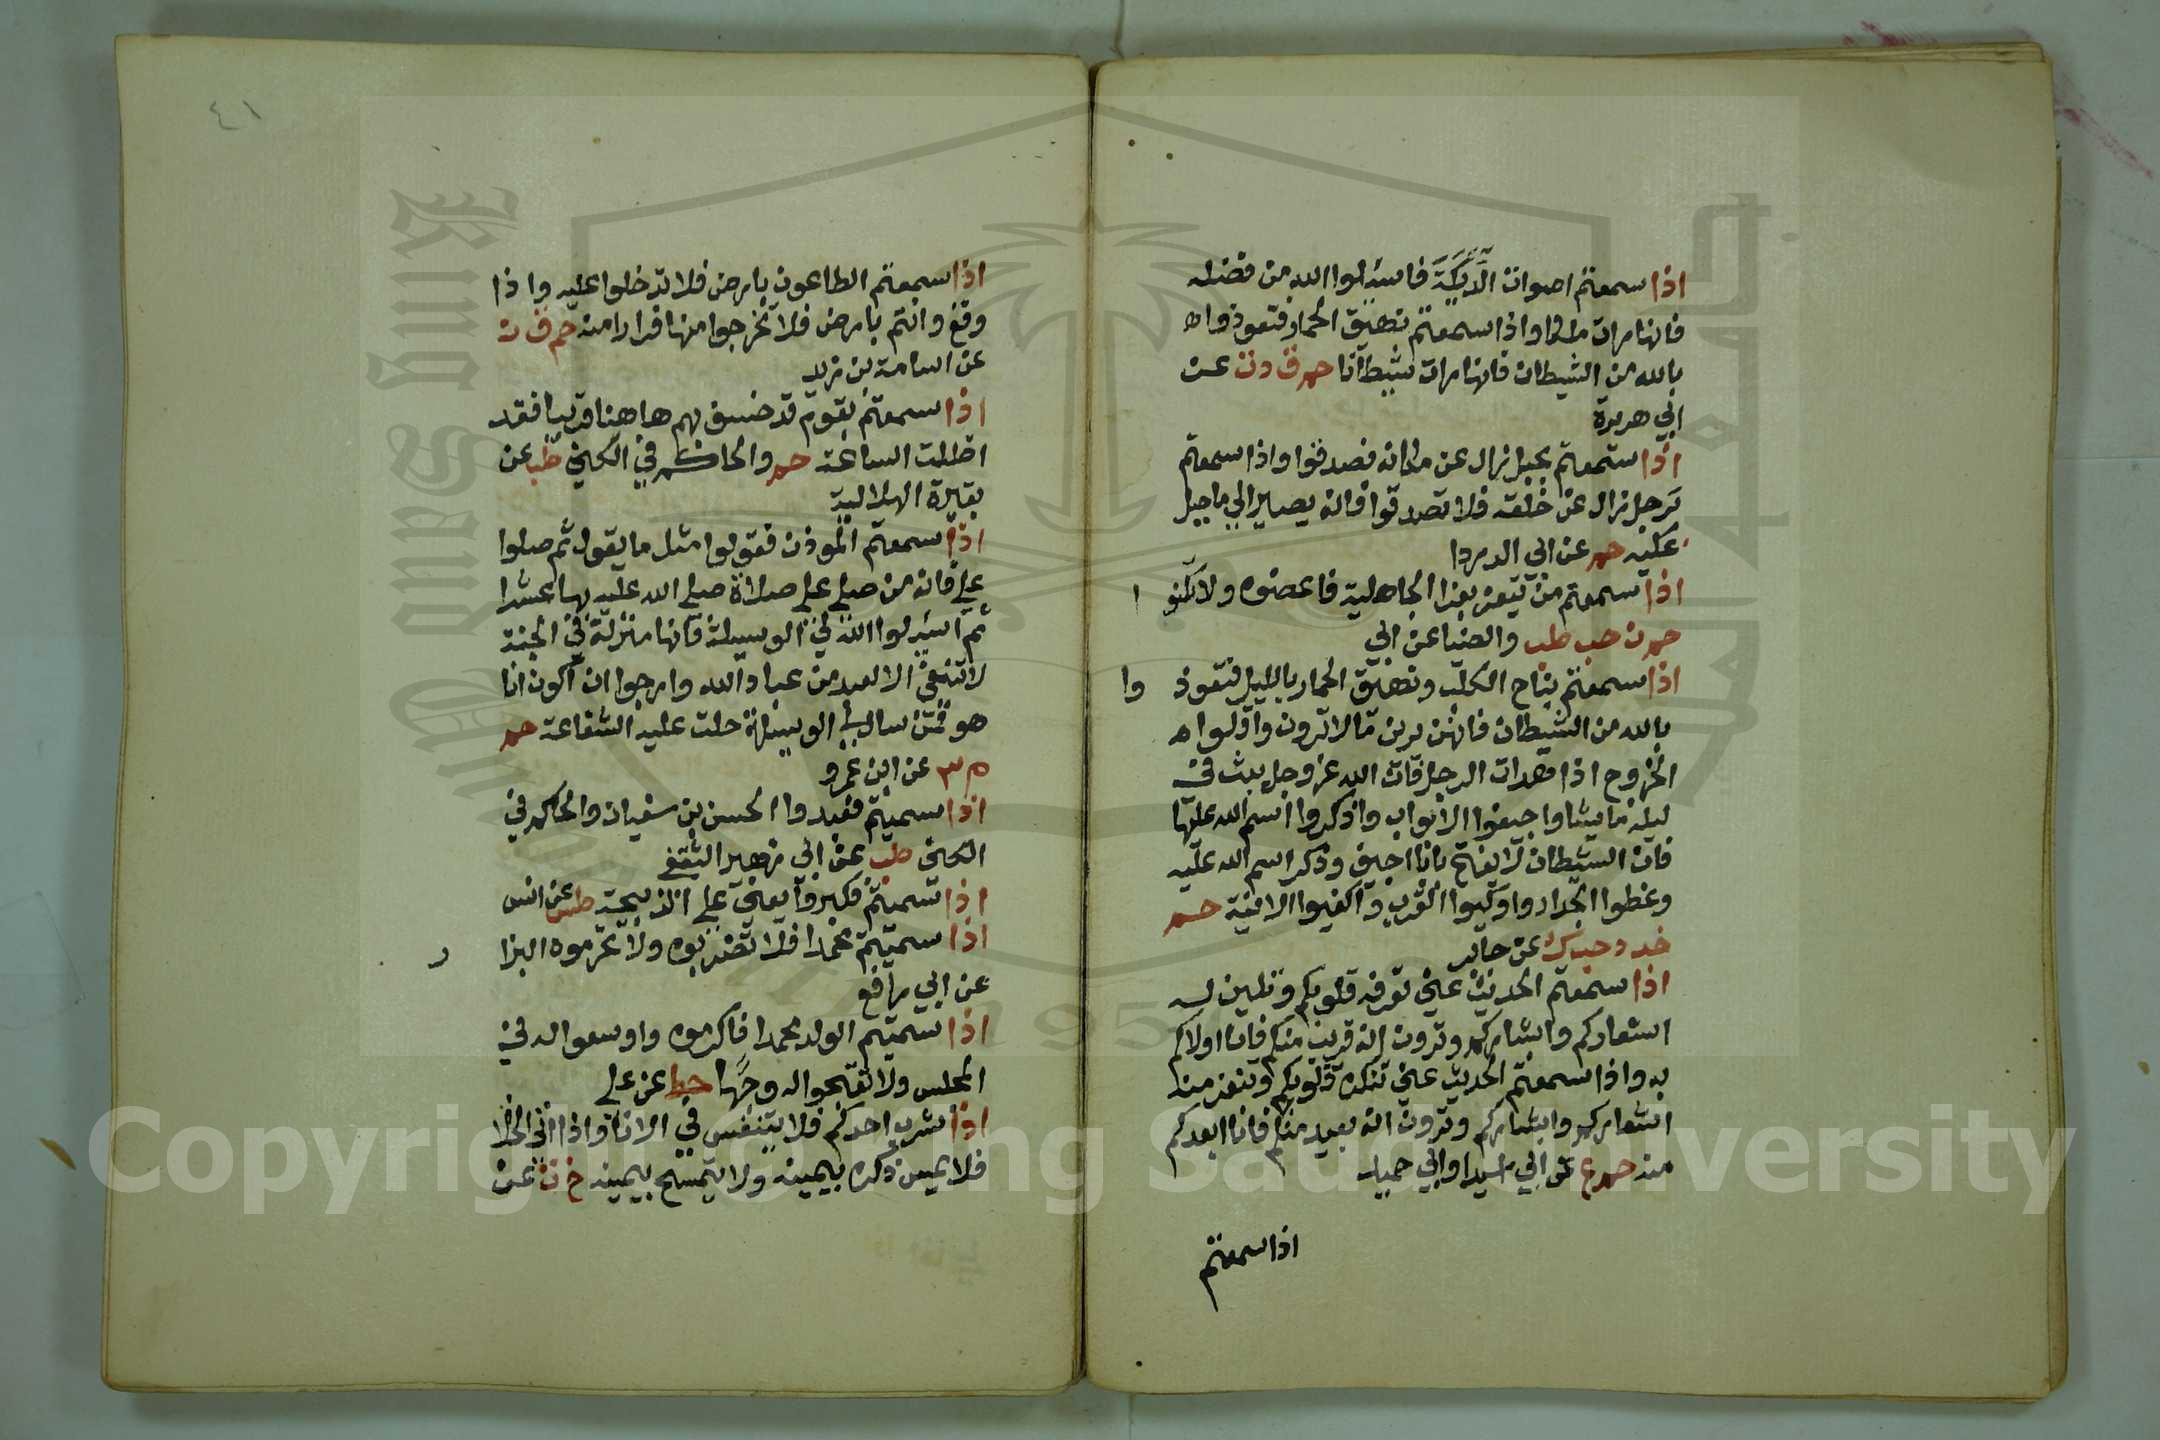 اذا سمعتم اصوات الديكة فاسئلوا الله من فضله
فانها رات ملكا واذا سمعتم نهيق الحمار فتعوذوا
بالله من الشيطان فانها رات شيطانا حم ق د ت عن
ابي هريرة
اذا سمعتم بجبل زال عن مكانه فصدقوا واذا سمعتم
برجل زال عن خلقه فلا تصدقوا فانه يصير الي ما جبل
عليه حم عن ابي الدردا
اذا سمعتم من يتعزى بعزا الجاهلية فاعضوه ولا تكنو ا
حم ن حب طب والضيا عن ابي
اذا سمعتم نباح الكلب ونهيق الحمار بالليل فتعوذ وا
بالله من الشيطان فانهن يرين ما لا ترون واقلوا
الخروج اذا هدات الرجل فان الله عز وجل يبث في
ليله ما يشا واجيفوا الابواب واذكروا اسم الله عليها
فان الشيطان لا يفتح بابا اجيف وذكر اسم الله عليه
وغطوا الجرار واوكيوا القرب واكفيوا الانية حم
خد د حب ك عن جابر
اذا سمعتم الحديث عني تعرفه قلوبكم وتلين له
اشعاركم وابشاركم وترون انه قريب منكم فانا اولاكم
به واذا سمعتم الحديث عني تنكره قلوبكم وتنفر منه
اشعاركم وابشاركم وترون انه بعيد منكم فانا ابعدكم
منه حم ع عن ابي اسيد او ابي حميد
اذا سمعتم
٤١
اذا سمعتم الطاعون بارض فلا تدخلوا عليه واذا
وقع وانتم بارض فلا تخرجوا منها فرارا منه حم ق ن
عن اسامة بن زيد
اذا سمعتم بقوم قد خسف بهم هاهنا قريبا فقد
اظلت الساعة حم والحاكم في الكنى طب عن
بقيرة الهلالية
اذا سمعتم الموذن فقولوا مثل ما يقول ثم صلوا
علي فانه من صلى علي صلاة صلى الله عليه بها عشرا
ثم اسئلوا الله لي الوسيلة فانها منزلة في الجنة
لا تنبغي الا لعبد من عباد الله وارجوا ان اكون انا
هو فمن سال لي الوسيلة حلت عليه الشفاعة حم
م ٣ عن ابن عمرو
اذا سميتم فعبدوا الحسن بن سفيان والحاكم في
الكنى طب عن ابي زهير الثقفي
اذا سميتم فكبروا يعني على الذبيحة طس عن انس
اذا سميتم محمدا فلا تضربوه ولا تحرموه البزا ر
عن ابي رافع
اذا سميتم الولد محمدا فاكرموه واوسعوا له في
المجلس ولا تقبحوا له وجها خط عن علي
اذا شرب احدكم فلا يتنفس في الانا واذا اتى الخلا
فلا يمس ذكره بيمينه ولا يتمسح بيمينه خ ت عن
Copyright © King Saud University
King Saud University
1957